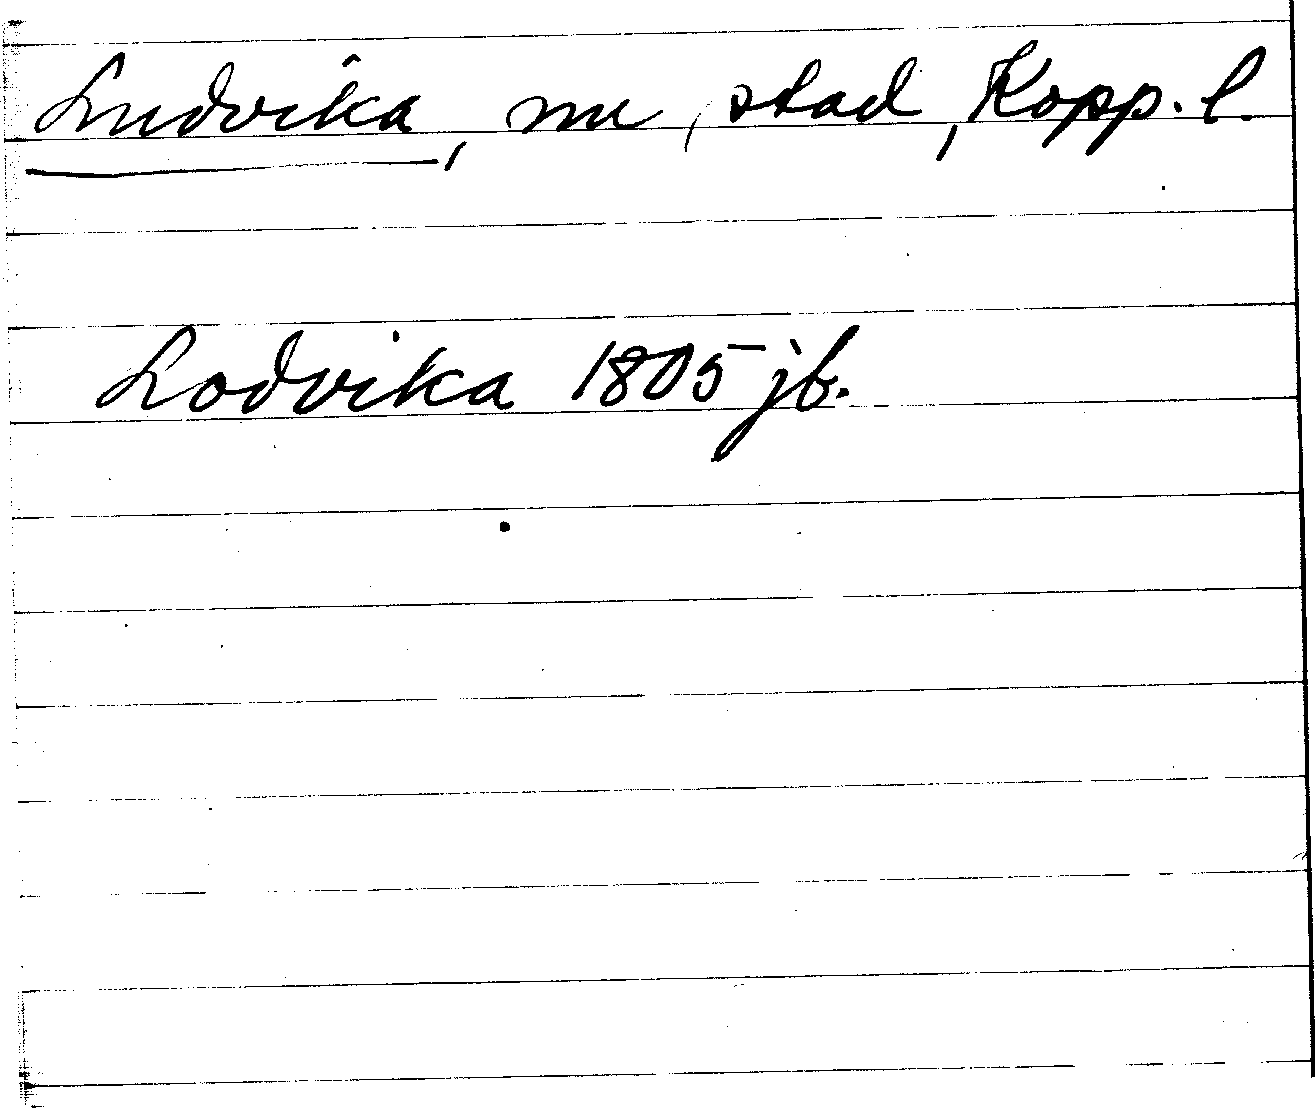 Ludvika, nu, stad, Kopp. l.
Lodvika 1805 jb.